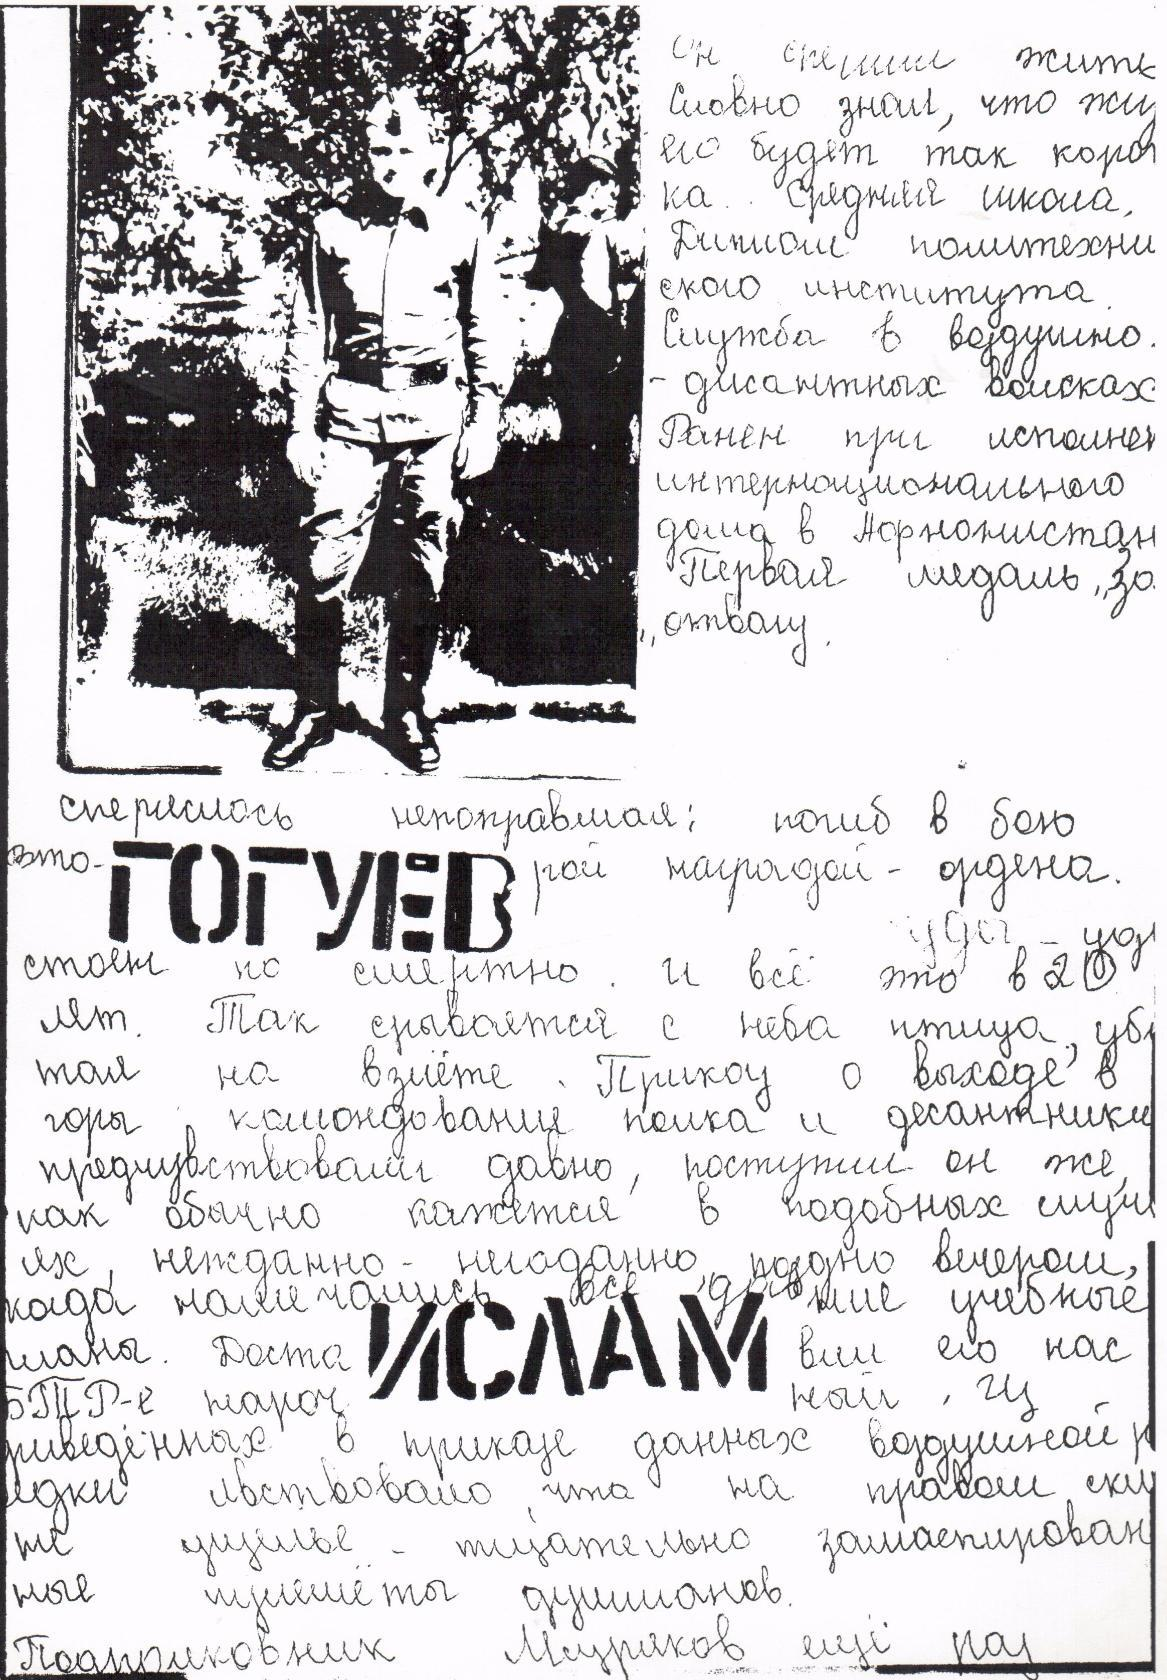 Он спешил жить
Словно знал, что жиз
его будет так корот
ка.. Средняя школа.
Диплом политехни
ского института.
Служба в воздушно.
- дисантных войсках
Ранен при исполнен
интернационального
долга в Афганистан
Первая медаль „За
„отвагу.
непоправимая: погиб в бою
вто-
ГОГУЕВ
рой наградой - ордена.
уды - удо
стоен посмертно. И всё это в 20
лет. Так срывается с неба птица, уби
тая на взлёте. Приказ о выходе в
горы, командование полка и десантники
предчувствовали давно, поступил он же,
как обычно кажется в подобных случа
ях, нежданно - негаданно, поздно вечером,
когда намечались все дал
ние учебные
планы. Доста
ИСЛАМ
вил его нас
БТР-е нароч
ный. Из
приведённых в приказе данных воздушной р
едки льствовало, что на правом скл
не ущелье - тщательно замаскирован
ные пулемёты душманов.
Подполковник ещё раз